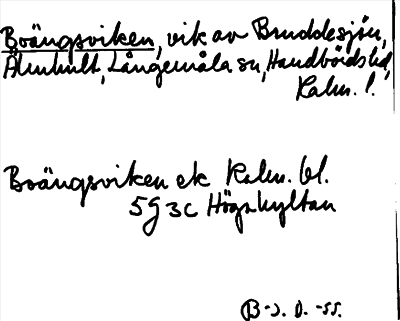 Boängsviken, vik av Bruddesjön,
Älmhult, Långemåla sn, Handbörds hd,
Kalm. l.
Boängsviken ek Kalm. bl.
5G 3c Högahyltan
B-J. D. -55.